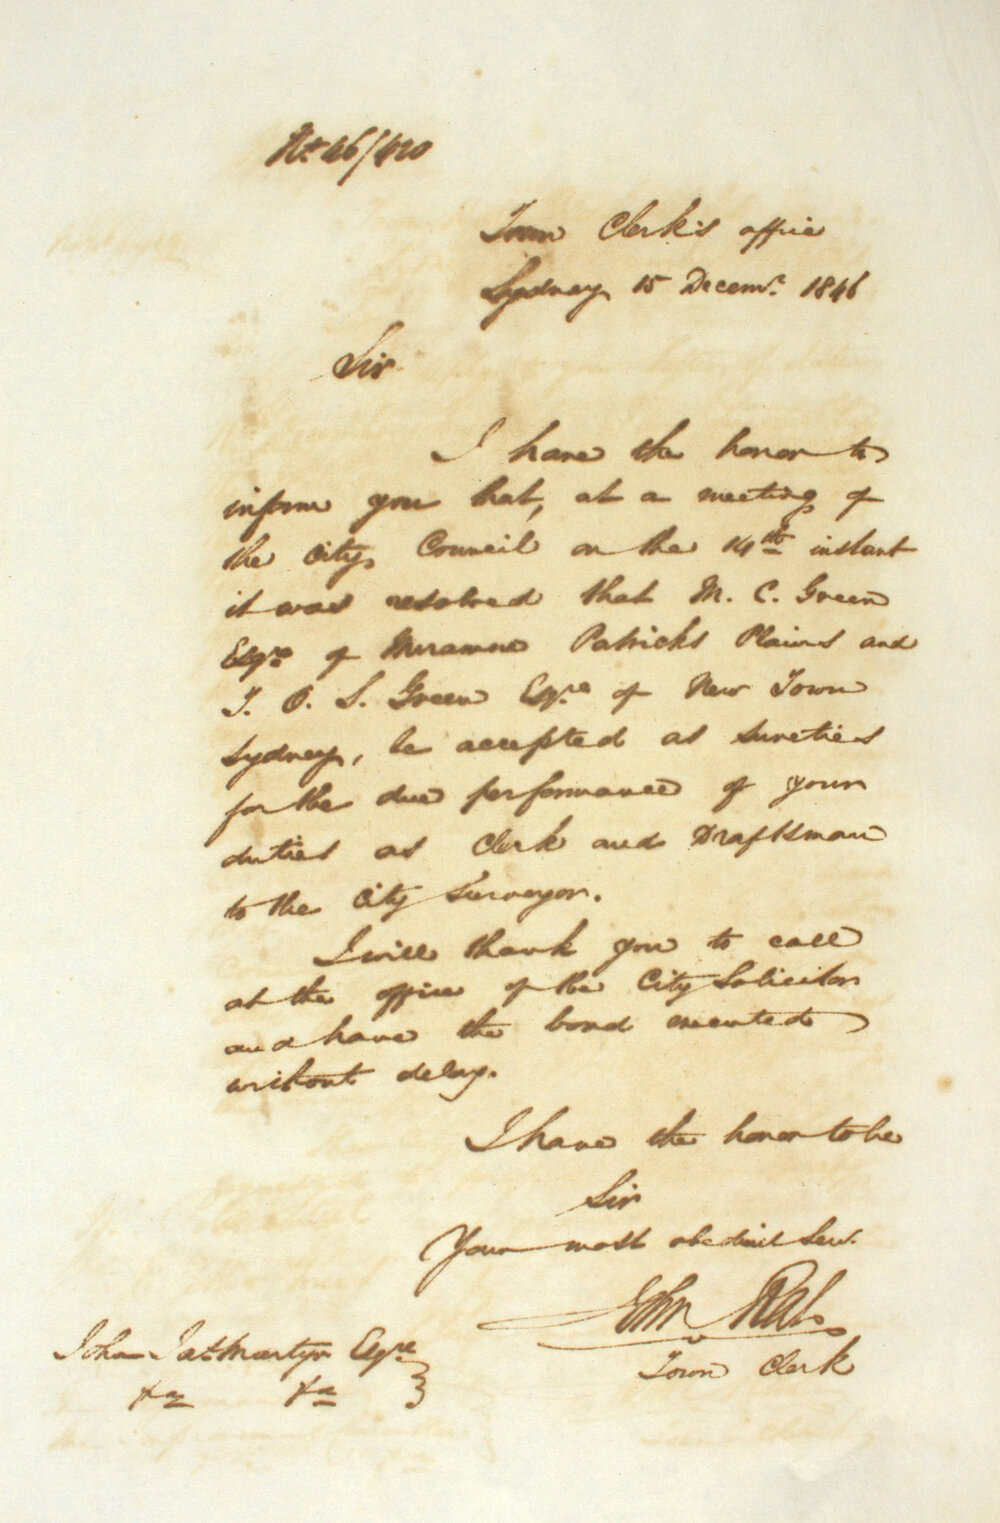 No 46/420
Town Clerk's office
Sydney 15 Decemr. 1846
Sir
I have the honor to
inform you that, at a meeting of
the City Council on the 14th instant
it was resolved that M. C. Green
Esqre of Patricks Plains and
T. O. S. Green Esqre of New Town
Sydney, be accepted as sureties
for the due performance of your
duties as Clerk and Draftsman
to the City Surveyor.
I will thank you to call
at the office of the City Solicitor
and have the bond executed
without delay.
I have the honor to be
Sir
Your most obedient Serv.
John Rae
Town Clerk
John Jas Martyn Esqre
&c &c